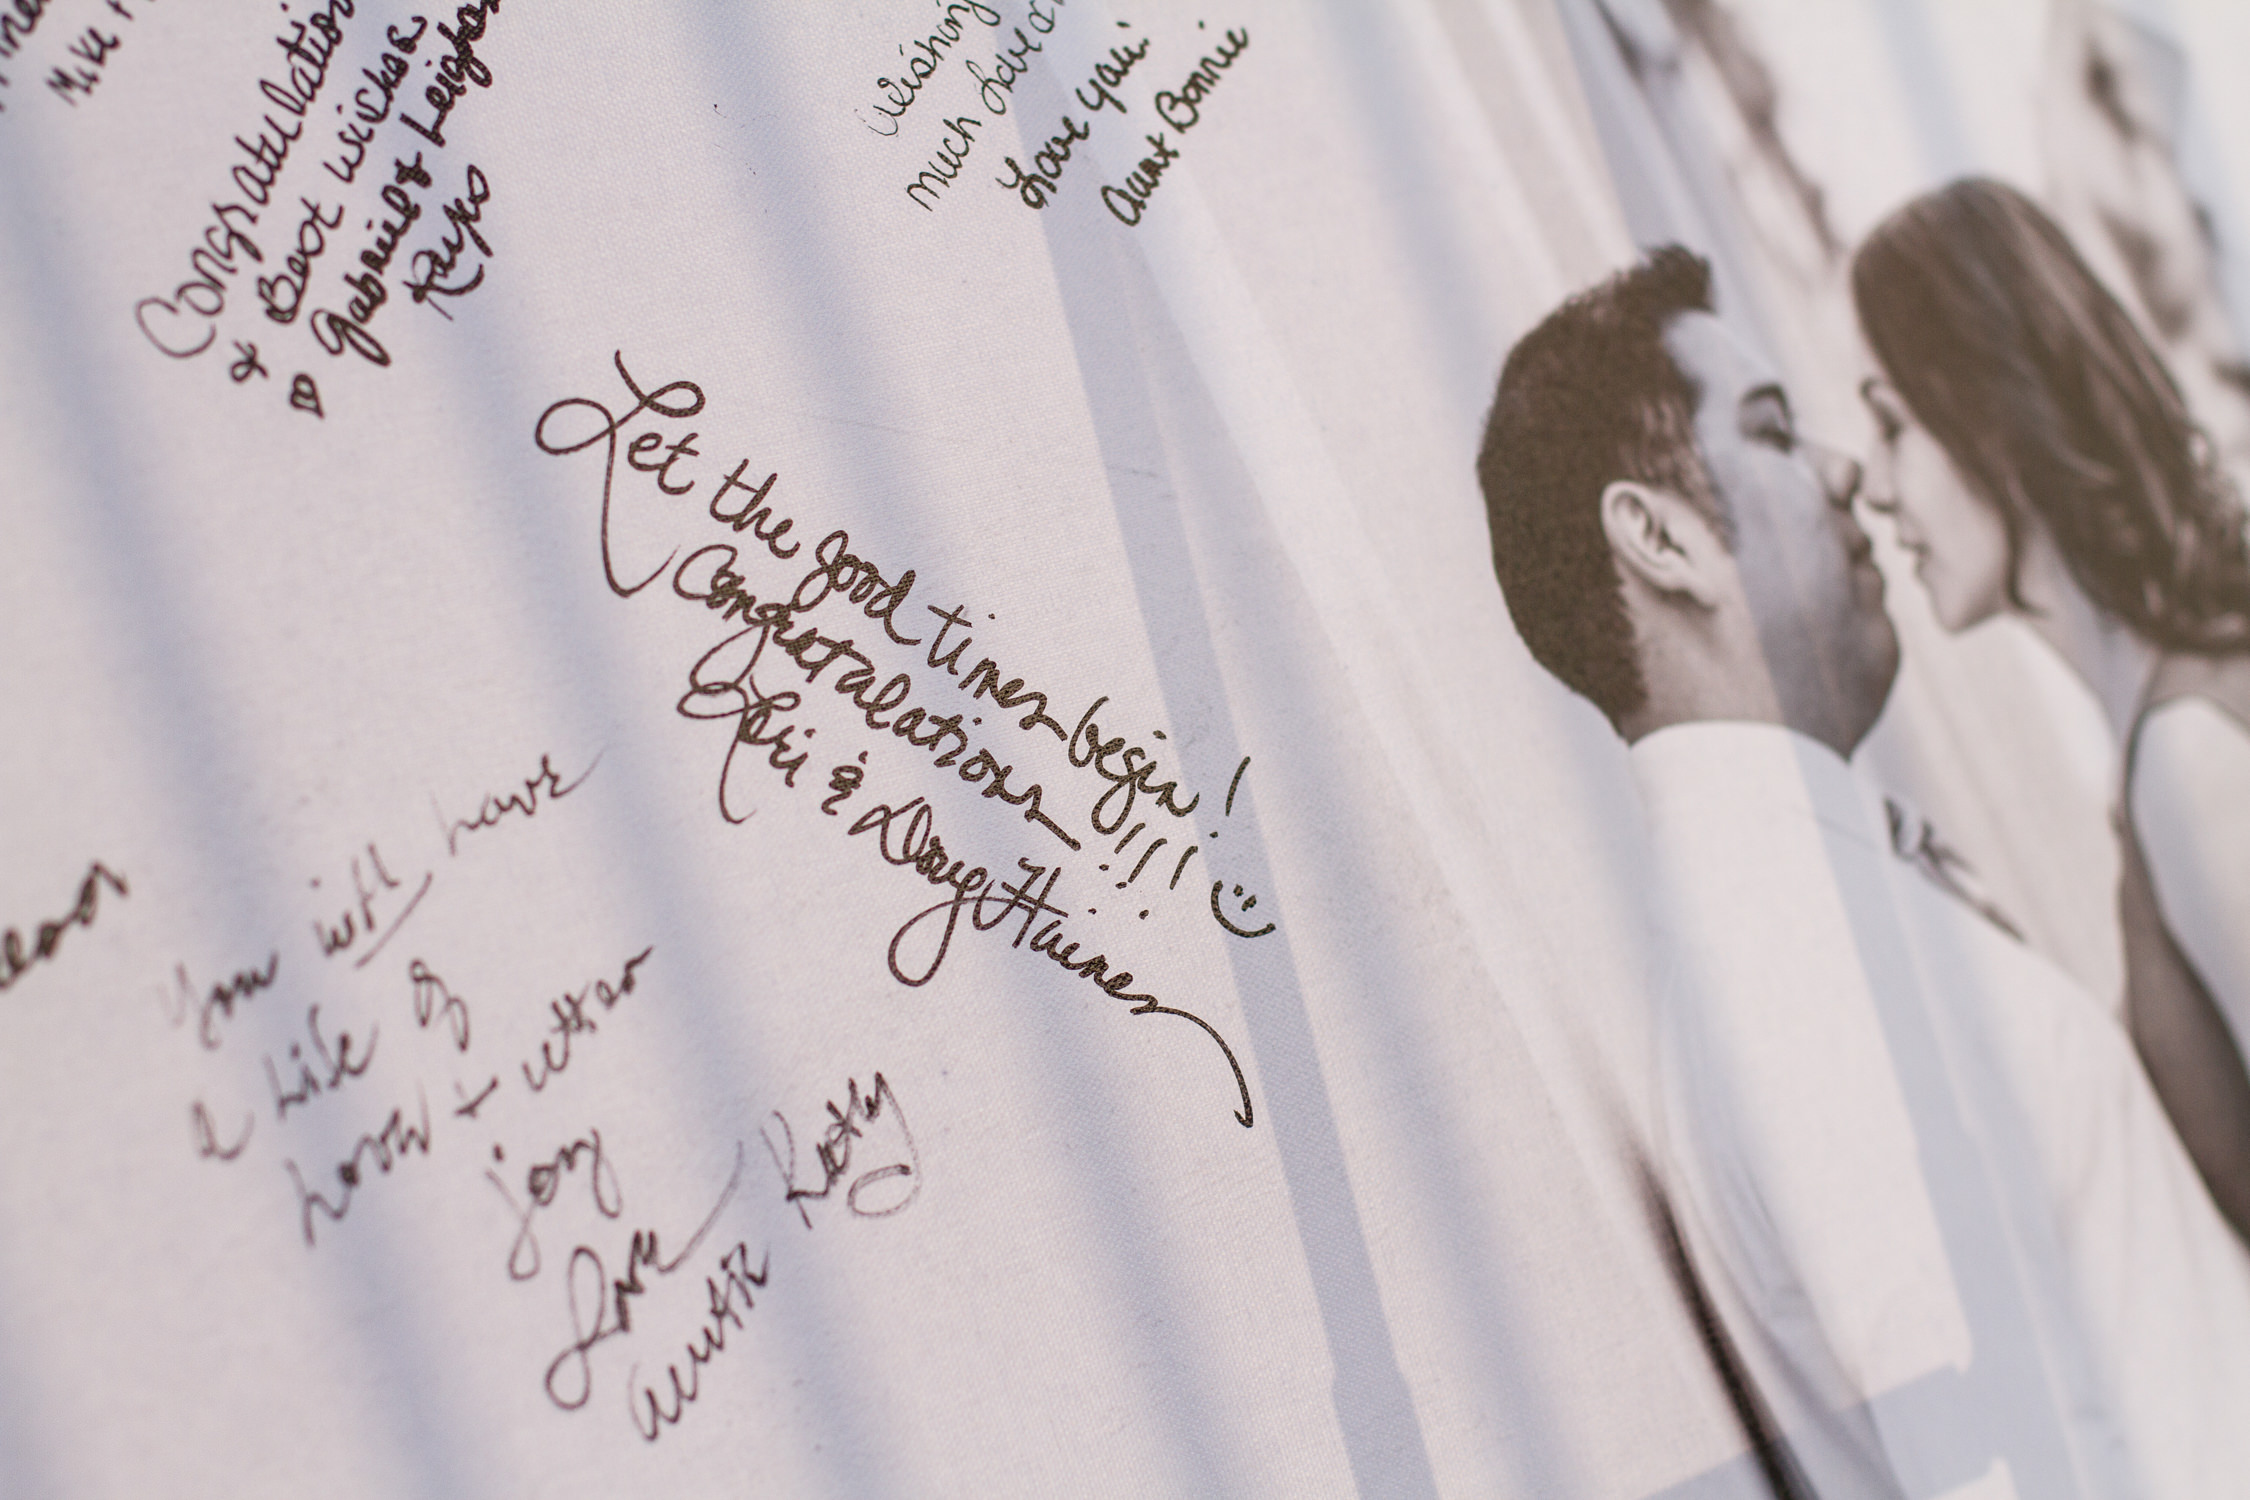 Mike +
Congratulations
& Best wishes
Gabriel & Leigha
Wishing
much Love
Love you!
Aunt Bonnie
Let the good times begin!
Congratulations!!!
Lori & Doug Haines
You will have
a Life of
Love + utter
joy
Love
Auntie Kathy